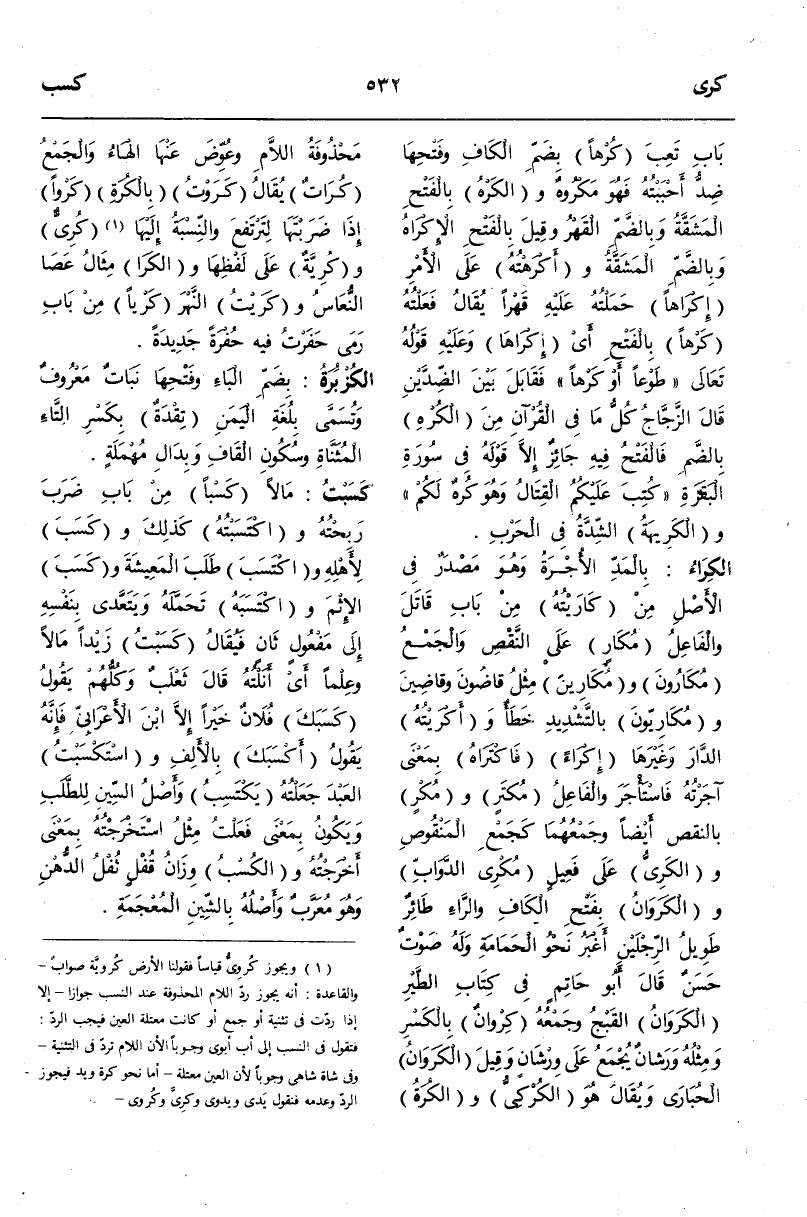 كرى ٥٣٢ كسب
بَابِ تَعِبَ (كُرْهاً) بِضَمِّ الْكَافِ وفَتْحِهَا
ضِدُّ أَحْبَبْتُهُ فَهُوَ مَكْرُوهٌ و (الكَرْهُ) بِالْفَتْحِ
الْمَشَقَّةُ وَبِالضَّمِّ القَهْرُ وقِيلَ بِالْفَتْحِ الْإِكْرَاهُ
وَبِالضَّمِّ الْمَشَقَّةُ و (أَكْرَهْتُهُ) عَلَى الْأَمْرِ
(إِكْرَاهاً) حَمَلْتُهُ عَلَيْهِ قَهْراً يُقَالُ فَعَلْتُهُ
(كَرْهاً) بِالْفَتْحِ أَىْ (إِكْرَاهَا) وَعَلَيْهِ قَوْلُهُ
تَعَالَى « طَوْعاً أَوْ كَرْهاً » فَقَابَلَ بَيْنَ الضِّدَّيْنِ
قَالَ الزَّجَّاجُ كُلُّ مَا فى الْقُرْآنِ مِنَ (الْكُرْهِ)
بِالضَّمِّ فَالْفَتْحُ فِيهِ جَائِزٌ إِلاَّ قَوْلَهُ فى سُورَةِ
الْبَقَرَةِ « كُتِبَ عَلَيْكُمُ القِتَالُ وَهُوَ كُرْهٌ لَكُمْ »
و (الْكَرِيهَةُ) الشِّدَّةُ فى الْحَرْبِ .
الكِرَاءُ : بِالْمَدِّ الأُجْرَةُ وَهُوَ مَصْدَرٌ فى
الْأَصْلِ مِنْ (كَارَيْتُهُ) مِنْ بَابِ قَاتَلَ
والْفَاعِلُ (مُكَارٍ) عَلَى النَّقْصِ وَالْجَمْعُ
(مُكَارُونَ) و (مُكَارِينَ) مِثْلُ قَاضُونَ وقَاضِينَ
و (مُكَارِيّونَ) بالتَّشْدِيدِ خَطَأٌ وَ (أَكْرَيْتُهُ)
الدَّارَ وَغَيْرَهَا (إِكْرَاءً) (فَاكْتَرَاهُ) بِمَعْنَى
آجَرْتُهُ فَاسْتَأْجَرَ والْفَاعِلُ (مُكْتَرٍ) و (مُكْرٍ)
بالنقص أَيْضاً وجَمْعُهُمَا كَجَمْعِ الْمَنْقُوصِ
و (الكَرِىُّ) عَلَى فَعِيلٍ (مُكْرِى الدَّوَابِّ)
و (الْكَرَوَانُ) بِفَتْحِ الْكَافِ والرَّاءِ طَائِرٌ
طَوِيلُ الرِّجْلَيْنِ أَغْبَرُ نَحْوُ الْحَمَامَةِ وَلَهُ صَوْتٌ
حَسَنٌ قَالَ أَبُو حَاتِمٍ فى كِتَابِ الطَّيْرِ
(الْكَرَوَانُ) القَبْجُ وجَمْعُهُ (كِرْوانٌ) بِالْكَسْرِ
وَمِثْلُهُ وَرَشَانٌ يُجْمَعُ عَلَى وِرْشَانٍ وَقِيلَ (الْكَرَوَانُ)
الْحُبَارَى وَيُقَالُ هُوَ (الْكُرْكِىُّ) وَ (الكُرَةُ)
مَحْذُوفَةُ اللاَّمِ وعُوِّضَ عَنْهَا الْهَاءُ وَالْجَمْعُ
(كُرَاتٌ) يُقَالُ (كَرَوْتُ) (بِالْكُرَةِ) (كَرْواً)
إِذَا ضَرَبْتَهَا لِتَرْتَفِعَ والنِّسْبَةُ إِلَيْهَا (١) (كُرِىٌّ)
و (كُرِيَّةٌ) عَلَى لَفْظِهَا و (الكَرَا) مِثَالُ عَصَا
النُّعَاسُ و (كَرَيْتُ) النَّهْرَ (كَرْياً) مِنْ بَابِ
رَمَى حَفَرْتُ فيه حُفْرَةً جَدِيدَةً .
الكُزْبُرَةُ : بِضَمِّ الْبَاءِ وفَتْحِهَا نَبَاتٌ مَعْرُوفٌ
وتُسَمَّى بِلُغَةِ الْيَمَنِ (تِقْدَةٌ) بِكَسْرِ التَّاءِ
الْمُثَنَّاةِ وسُكُونِ الْقَافِ وَبِدَالٍ مُهْمَلَةٍ .
كَسَبْتُ : مَالاً (كَسْباً) مِنْ بَابِ ضَرَبَ
رَبِحْتُهُ و (اكْتَسَبْتُهُ) كَذلِكَ و (كَسَبَ)
لِأَهْلِهِ و (اكْتَسَبَ) طَلَبَ الْمَعِيشَةَ و (كَسَبَ)
الإِثْمَ و (اكْتَسَبَهُ) تَحَمَّلَهُ وَيَتَعَدَّى بِنَفْسِهِ
إِلَى مَفْعُولٍ ثَانٍ فَيُقَالُ (كَسَبْتُ) زَيْداً مَالاً
وعِلْماً أَىْ أَنَلْتُهُ قَالَ ثَعْلَبٌ وَكُلُّهُمْ يَقُولُ
(كَسَبَكَ) فُلَانٌ خَيْراً إِلاَّ ابْنَ الْأَعْرَابِىِّ فَإِنَّهُ
يَقُولُ (أَكْسَبَكَ) بِالْأَلِفِ و (اسْتَكْسَبْتُ)
العَبْدَ جَعَلْتُهُ (يَكْتَسِبُ) وَأَصْلُ السِّينِ لِلطَّلَبِ
وَيَكُونُ بِمَعْنَى فَعَلْتُ مِثْلُ اسْتَخْرَجْتُهُ بِمَعْنَى
أَخْرَجْتُهُ و (الكُسْبُ) وِزَانُ قُفْلٍ ثُفْلُ الدُّهْنِ
وَهُوَ مُعَرَّبٌ وَأَصْلُهُ بِالشِّينِ الْمُعْجَمَةِ .
(١) ويجوز كُرَوِىٌّ قياساً فقولنا الأرض كُرويَّة صوابٌ –
والقاعدة : أنه يجوز ردّ اللام المحذوفة عند النسب جوازا – إلا
إذا ردّت فى تثنية أو جمع أو كانت معتلة العين فيجب الردّ :
فتقول فى النسب إلى أب أبوى وجوباً لأن اللام تردّ فى التثنية –
وفى شاة شاهى وجوباً لأن العين معتلة – أما نحو كرة ويد فيجوز
الردّ وعدمه فنقول يَدى ويدوى وكرىّ وكُروى –